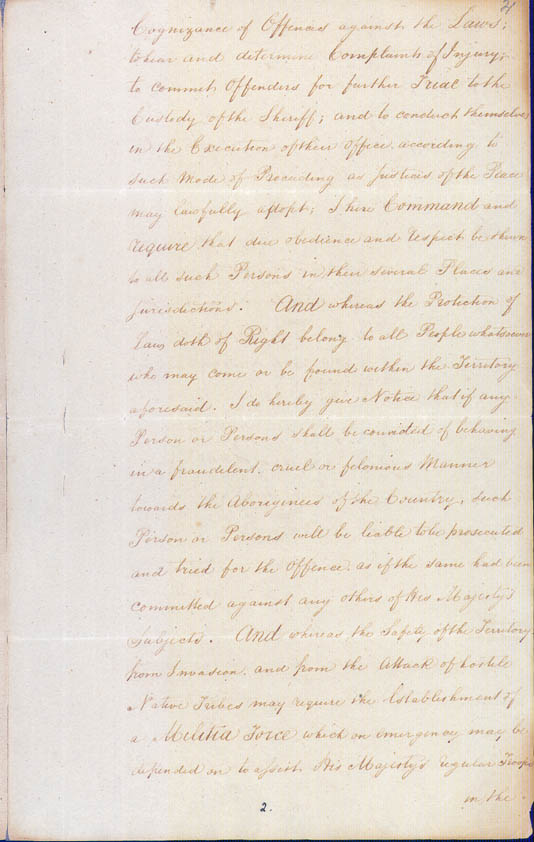 Cognizance of Offences against the Laws;
to hear and determine Complaints of Injury;
to commit Offenders for further Trial to the
Custody of the Sheriff; and to conduct themselves
in the Execution of their Office, according to
such Mode of Proceeding as Justices of the Peace
may lawfully adopt; I here Command and
require that due obedience and respect be shewn
to all such Persons in their several Places and
Jurisdictions. And whereas the Protection of
Law doth of Right belong to all People whatsoever
who may come or be found within the Territory
aforesaid. I do hereby give Notice that if any
Person or Persons shall be convicted of behaving
in a fraudulent, cruel or felonious Manner
towards the Aborigines of the Country, such
Person or Persons will be liable to be prosecuted
and tried for the Offence, as if the same had been
committed against any others of His Majesty's
Subjects. And whereas the Safety of the Territory
from Invasion, and from the Attack of hostile
Native Tribes may require the Establishment of
a Militia Force which on emergency may be
depended on to assist His Majesty's regular Troops
in the
2.